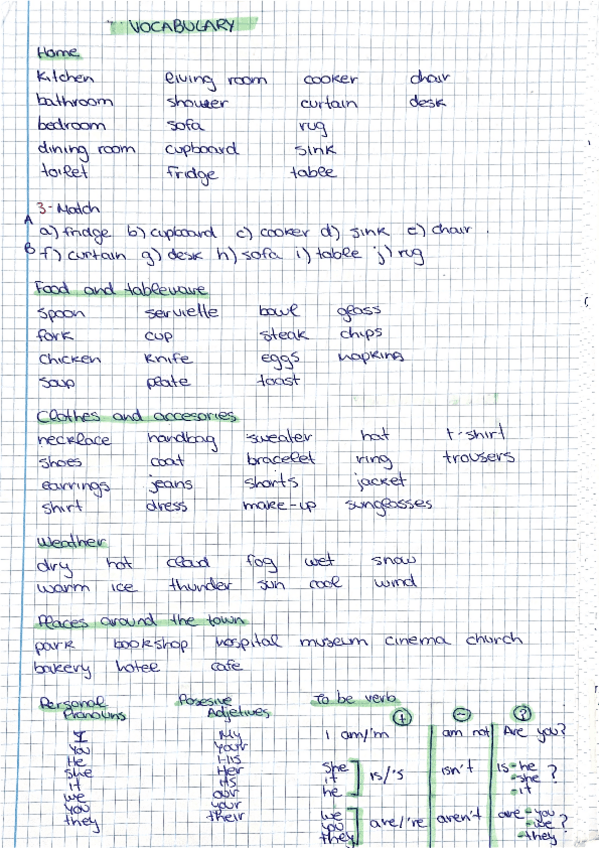 VOCABULARY
Home
Kitchen living room cooker chair
bathroom shower curtain desk
bedroom sofa rug
dining room cupboard sink
toilet fridge table
3-Match
A a) fridge b) cupboard c) cooker d) sink e) chair.
B f) curtain g) desk h) sofa i) table j) rug
Food and tableware
spoon serviette bowl glass
fork cup steak chips
chicken knife eggs napking
soup plate toast
Clothes and accesories
necklace handbag sweater hat t-shirt
shoes coat bracelet ring trousers
earrings jeans shorts jacket
shirt dress make-up sunglasses
Weather
dry hot cloud fog wet snow
warm ice thunder sun cool wind
Places around the town
park bookshop hospital museum cinema church
bakery hotel cafe
Personal Posesive To be verb
Pronouns Adjetives + - ?
I My I am/'m am not Are you?
You Your
He His she is - he
She Her it is/'s isn't - she ?
it its he - it
we our
you your we are - you
they their you are/'re aren't - we ?
they - they